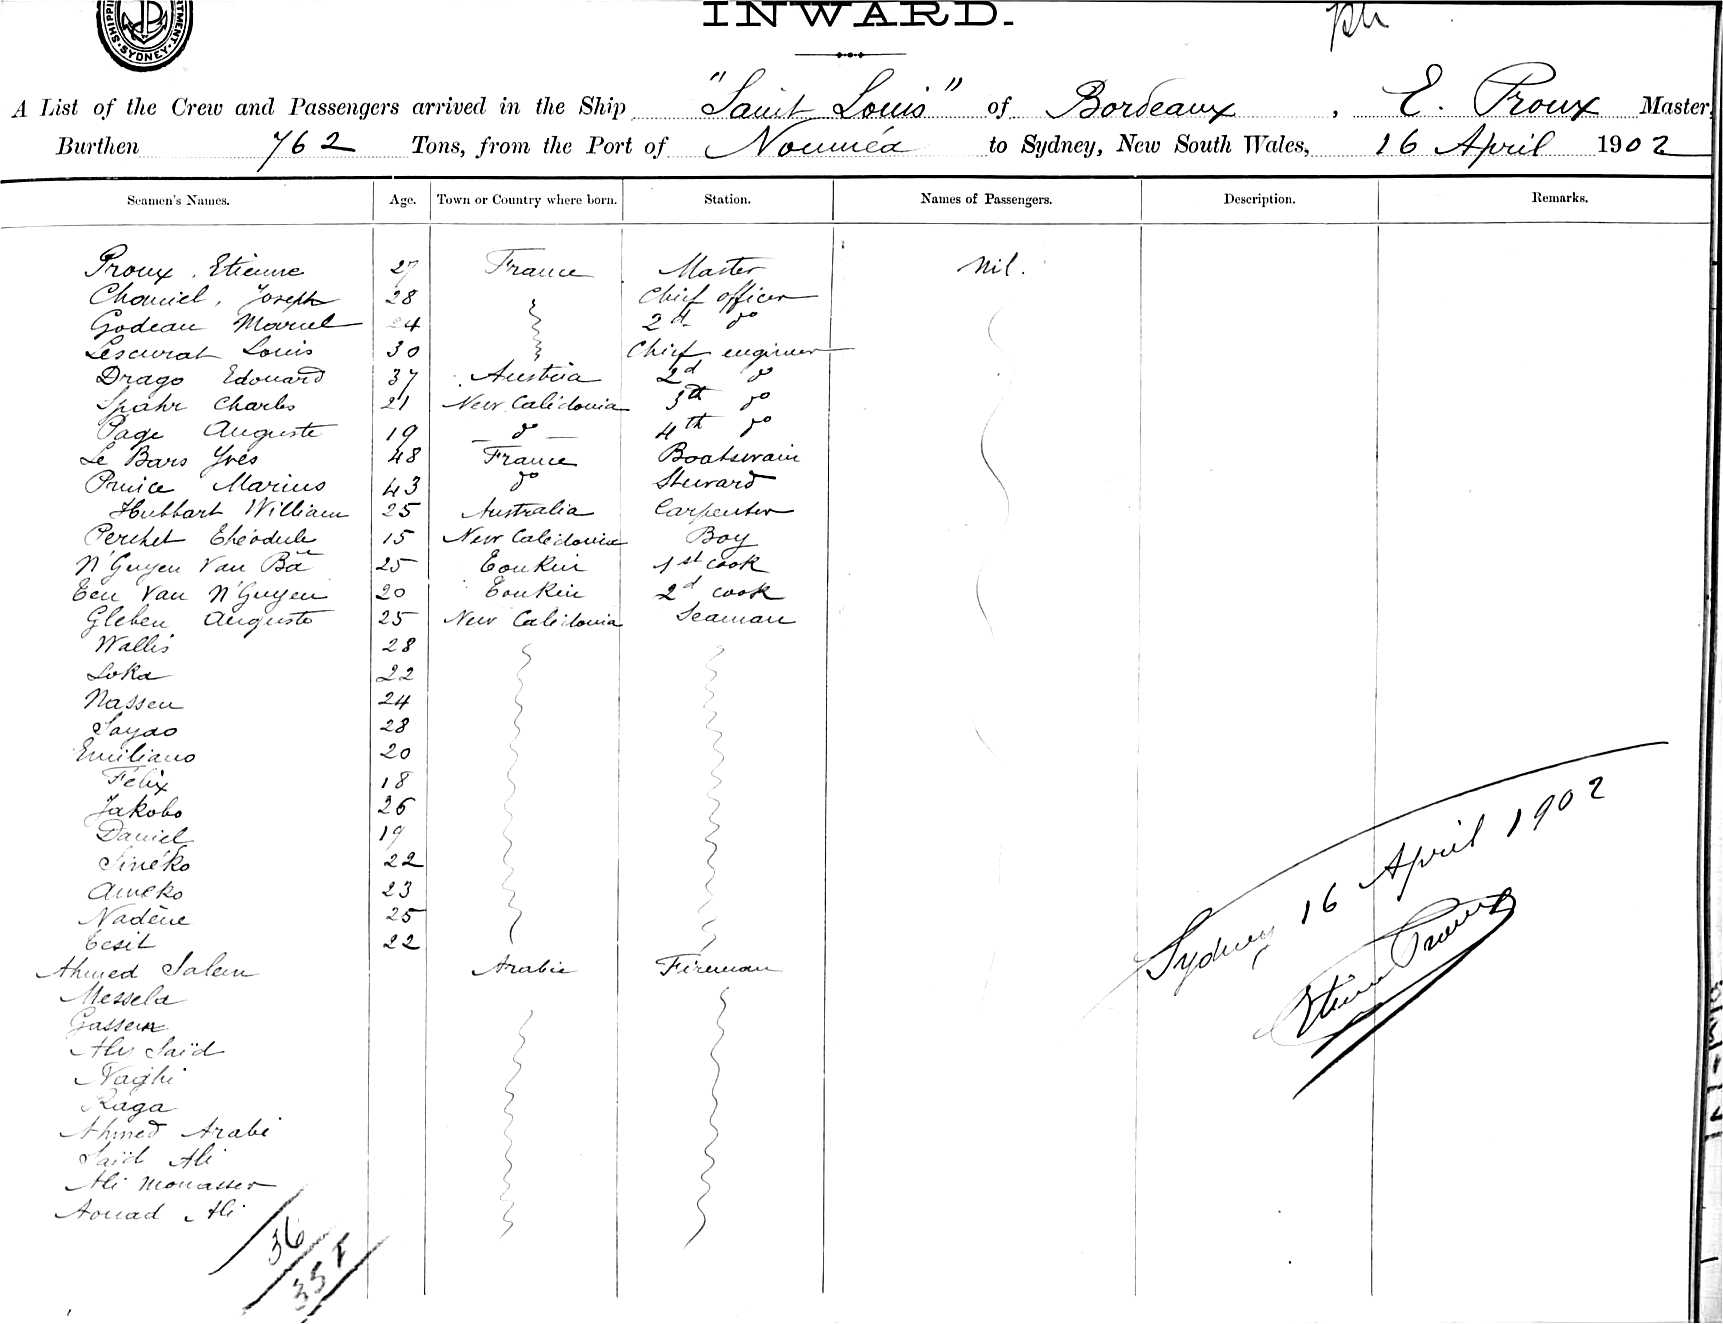 SHIPPING DEPARTMENT · SYDNEY ·
INWARD.
A List of the Crew and Passengers arrived in the Ship "Saint Louis" of Bordeaux, E. Proux Master,
Burthen 762 Tons, from the Port of Nouméa to Sydney, New South Wales, 16 April 1902
Seamen's Names. Age. Town or Country where born. Station. Names of Passengers. Description. Remarks.
Proux, Etienne 27 France Master Nil.
Joseph 28 Chief officer
Godeau Marcel 24 2d do
Lescurat Louis 30 Chief engineer
Drago Edouard 37 Austria 2d do
Spahr Charles 21 New Calédonia 3th do
Page Auguste 19 — do — 4th do
Le Bars Yves 48 France Boatswain
Marius 43 do Steward
Hubbart William 25 Australia Carpenter
Perchet Théodule 15 New Calédonia Boy
N'Guyen Van Ba 25 Tonkin 1st cook
Ten Van N'Guyen 20 Tonkin 2d cook
Gleben Auguste 25 New Calédonia Seaman
Wallis 28
Loka 22
Nassen 24
Sayao 28
Emiliano 20
Félix 18
Jakobo 26
Daniel 19
Sinéko 22
Améko 23
Nadène 25
22
Ahmed Salem Arabie Fireman
Messela
Gassem
Aly Saïd
Naghi
Raga
Ahmed Arabi
Saïd Ali
Ali Monasser
Aouad Ali
36
35
Sydney 16 April 1902
Etienne Proux